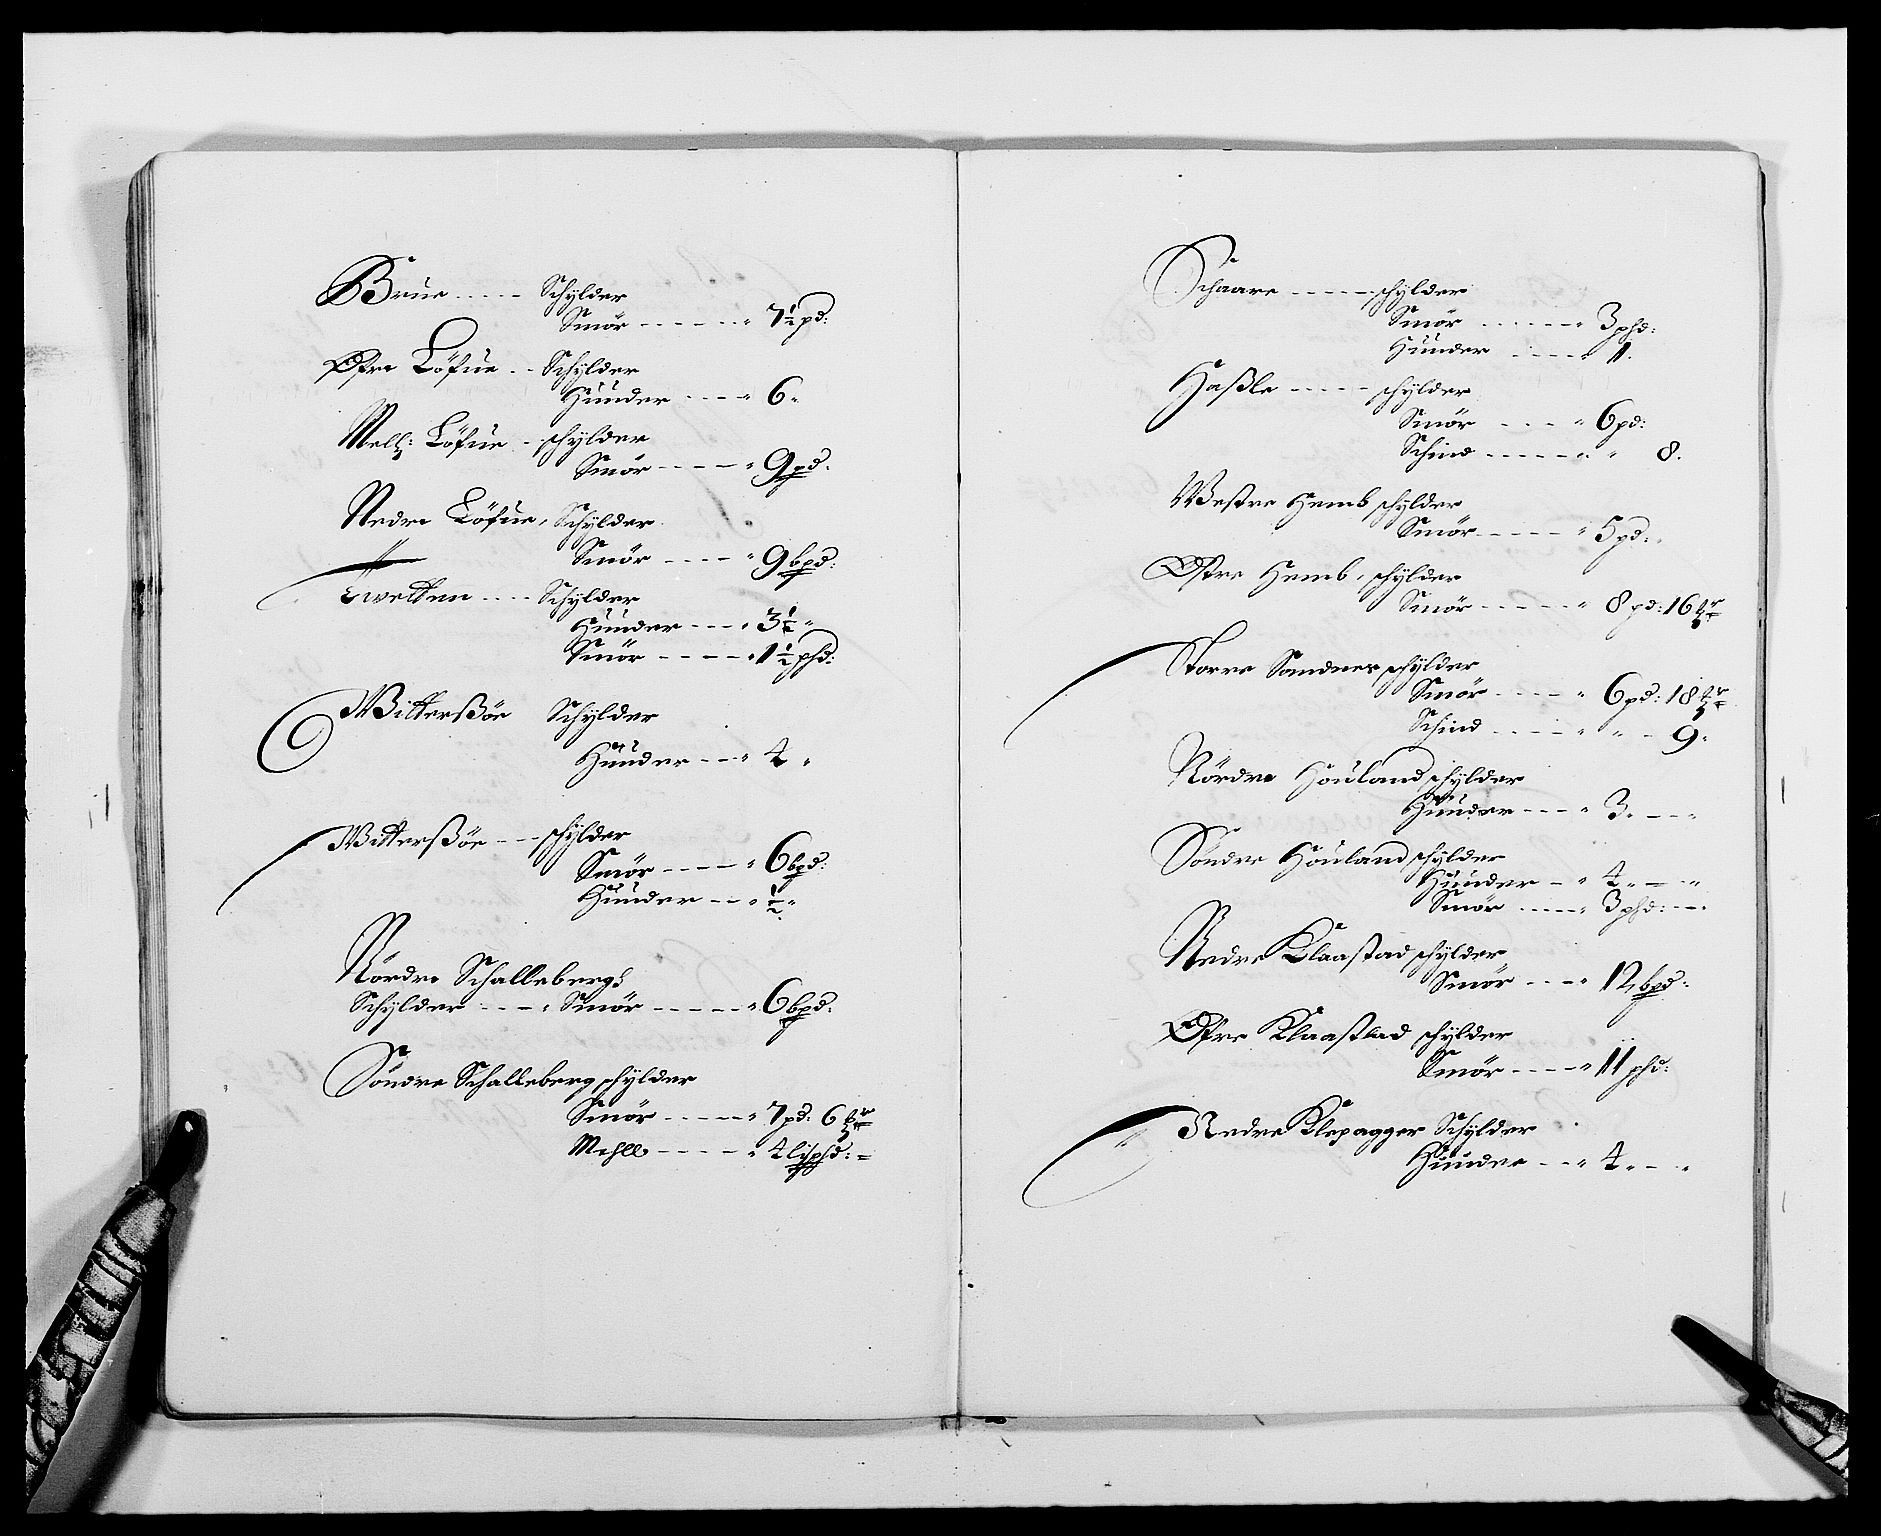 Brue ..... Schylder
Smör ------ " 7½ pd:
Öfre Löfue .. Schylder
Hunder ---- " 6 "
Mell: Löfue - schylder
Smör ----- " 9 pd.
Nedre Löfue, Schylder
Smör ---- " 9 bpd:
Twetten .... Schylder
Hunder ---- " 3½ "
Smör ----- " 1½ phd:
Witterßöe Schylder
Hunder --- " 4 "
Witterßöe --- schylder
Smör ----- " 6 bpd:
Hunder --- " ½ "
Nördre Schalleberg
Schylder ---- " Smör ------ " 6 bpd.
Söndre Schalleberg schylder
Smör ----- " 7 pd: 6
Mehll ----- " 4 lispd: =
Schaare ------ schylder
Smör ------ " 3 phd:
Hunder ---- " 1.
Haßle ----- schylder
Smör ---- " 6 pd:
Schind ------ " " 8.
Westre Hemb schylder
Smör ----- " 5 pd: "
Östre Hemb, schylder
Smör ----- " 8 pd: 16
Storre Sandnes schylder
Smör ----- " 6 pd: 18
Schind ----- " " - 9 "
Nördre Houland schylder
Hunder ---- " 3. -- "
Söndre Houland schylder
Hunder -- " 4 " -- "
Smör ---- " 3 phd: --
Nedre Klaastad schylder
Smör ---- " 12 bpd:
Öfre Klaastad schylder
Smör ---- " 11 phd:
Nedre Klepagger Schylder
Hundre --- " 4 " -- "